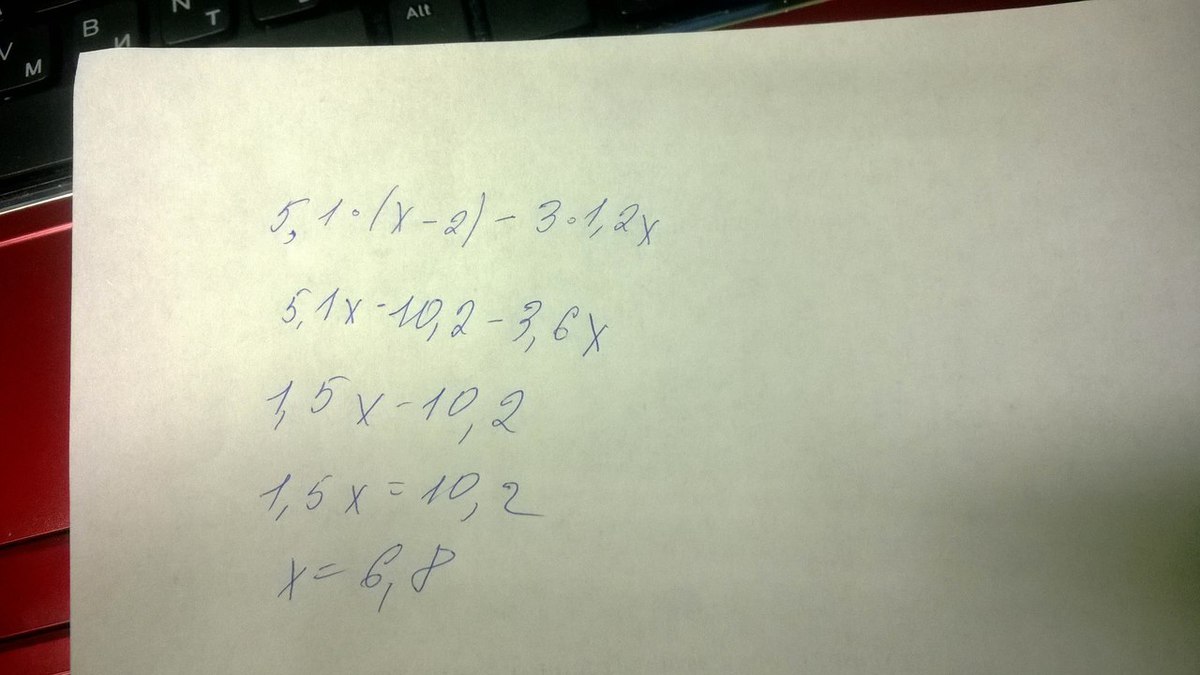 V
М
B
И
N
Т
Alt
5,1·(x-2)-3·1,2x
5,1x-10,2-3,6x
1,5x-10,2
1,5x=10,2
x=6,8